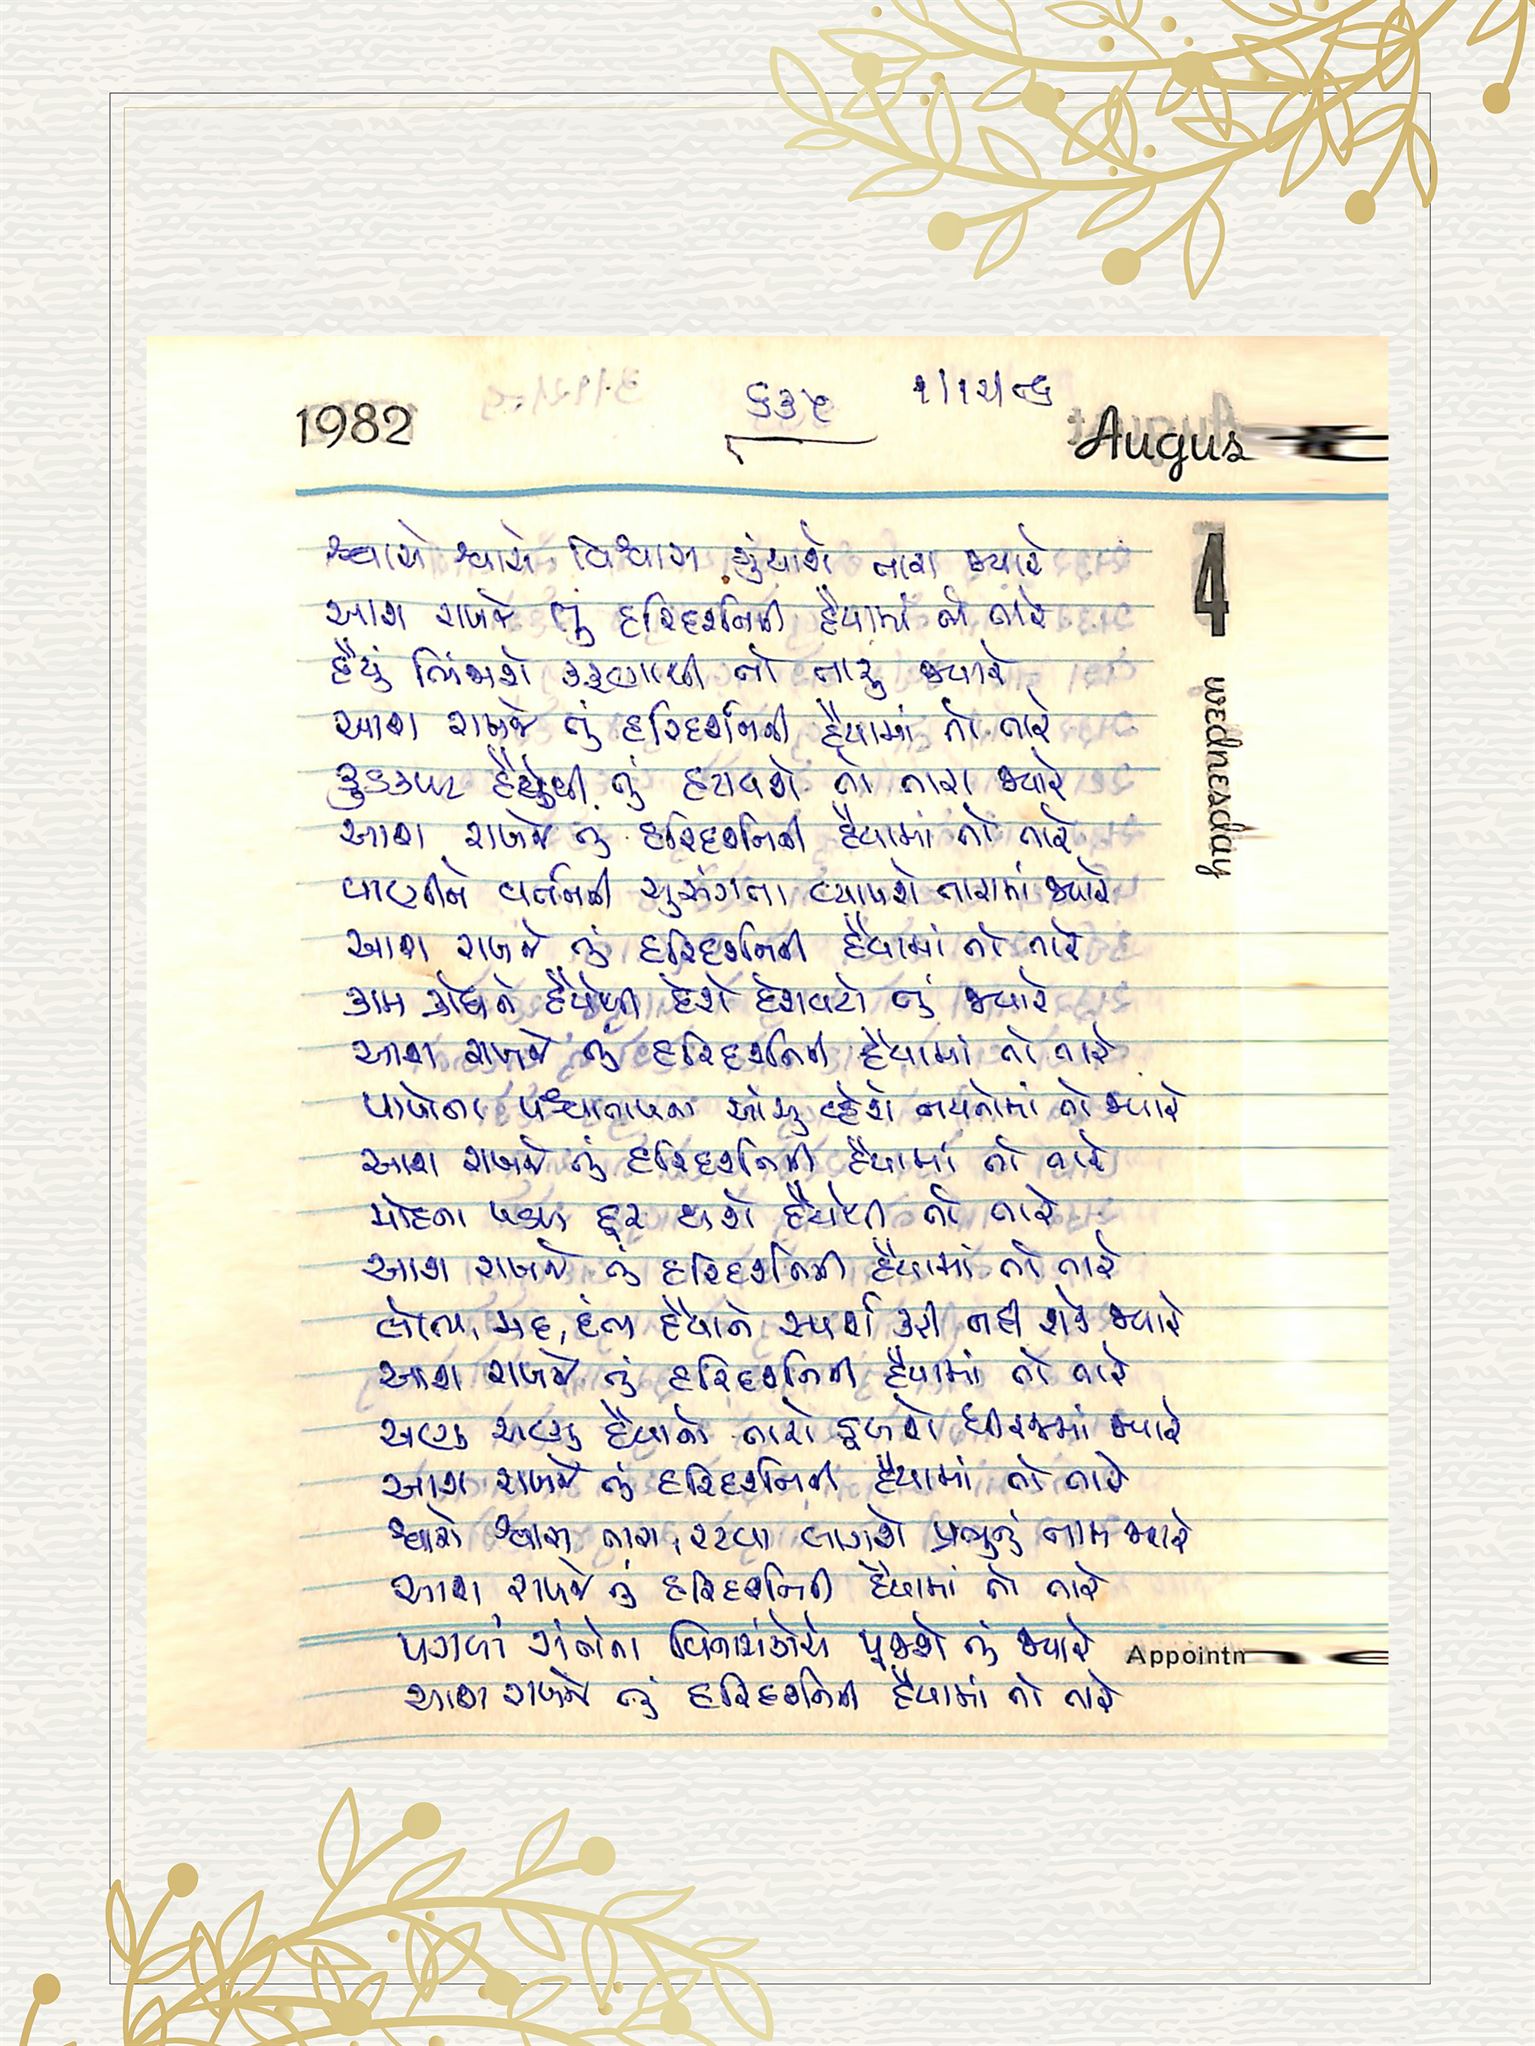 1982 ૬૩૯ ૧/૧૨/૮૬ Augus
4
wednesday
શ્વાસે શ્વાસે વિશ્વાસ ગુંથાશે તારા જ્યારે
આશ રાખજે તું હરિદર્શનની હૈયામાં તો ત્યારે
હૈયું ભિંજાશે કરૂણાથી તો તારૂ જ્યારે
આશ રાખજે તું હરિદર્શનની હૈયામાં તો ત્યારે
કુડકપટ હૈયેથી તું હટાવશે તો તારા જ્યારે
આશ રાખજે તું હરિદર્શનની હૈયામાં તો ત્યારે
વાણીને વર્તનની સુસંગતા વ્યાપશે તારામાં જ્યારે
આશ રાખજે તું હરિદર્શનની હૈયામાં તો ત્યારે
કામ ક્રોધને હૈયેથી દેશે દેશવટો તું જ્યારે
આશ રાખજે તું હરિદર્શનની હૈયામાં તો ત્યારે
પાપોના પશ્ચાતાપના આંસુ વ્હેશે નયનોમાં તો જ્યારે
આશ રાખજે તું હરિદર્શનની હૈયામાં તો ત્યારે
મોહના પડળ દૂર થાશે હૈયેથી તો ત્યારે
આશ રાખજે તું હરિદર્શનની હૈયામાં તો ત્યારે
લોભ, મદ, દંભ હૈયાને સ્પર્શ કરી નહી શકે જ્યારે
આશ રાખજે તું હરિદર્શનની હૈયામાં તો ત્યારે
અણુ અણુ હૈયાનો તારો ડૂબશે ધીરજમાં જ્યારે
આશ રાખજે તું હરિદર્શનની હૈયામાં તો ત્યારે
શ્વાસે શ્વાસ તારા, રટવા લાગશે પ્રભુનું નામ જ્યારે
આશ રાખજે તું હરિદર્શનની હૈયામાં તો ત્યારે
પગલાં સંતોના વિશ્વાસે પૂજશે તું જ્યારે
આશ રાખજે તું હરિદર્શનની હૈયામાં તો ત્યારે
Appointn